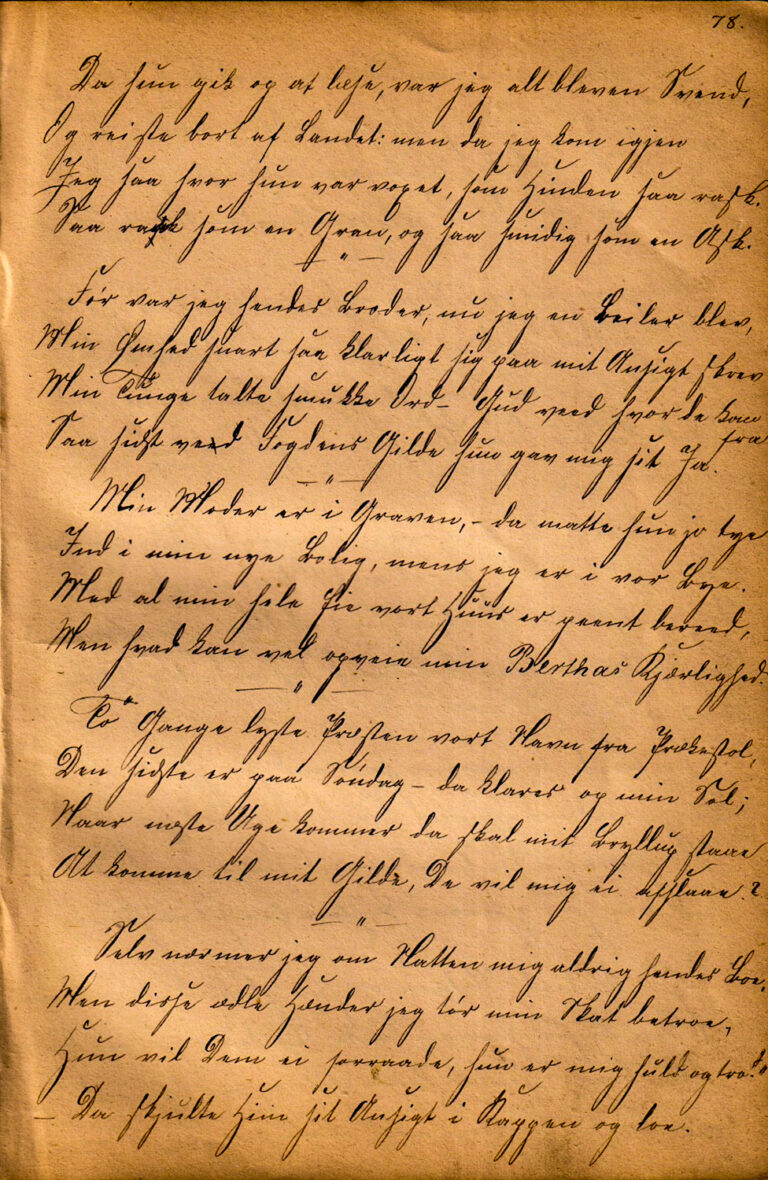 78.
Da hun gik op at læse, var jeg alt bleven Svend,
Og reiste bort af Landet: men da jeg kom igjen
Jeg saa hvor hun var voxet, som Hinden saa rask.
Saa rask som en Gran, og saa smidig som en Ask.
– " –
Før var jeg hendes Broder, nu jeg en Beiler blev,
Min Ømhed snart saa klarligt sig paa mit Ansigt skrev
Min Tunge talte smukke Ord – Gud veed hvor de kom
fra
Saa sidst ved Fogdens Gilde hun gav mig sit Ja.
– " –
Min Moder er i Graven, – da matte hun jo tye
Ind i min nye Bolig, mens jeg er i vor Bye.
Med al min hele Fie vort Huus er peent bereed,
Men hvad kan vel opveie min Berthas Kjærlighed.
– " –
To Gange lyste Præsten vort Navn fra Prækestol,
Den sidste er paa Søndag – da klares op min Sol;
Naar næste Uge kommer da skal mit Bryllup staae
At komme til mit Gilde, De vil mig ei afslaae.?
– " –
Selv nærmer jeg om Natten mig aldrig hendes Boe,
Men disse ædle Hænder jeg tør min Skat betroe,
Hun vil Dem ei forraade, hun er mig huld og tro."
– Da skjulte Him sit Ansigt i Kappen og loe.